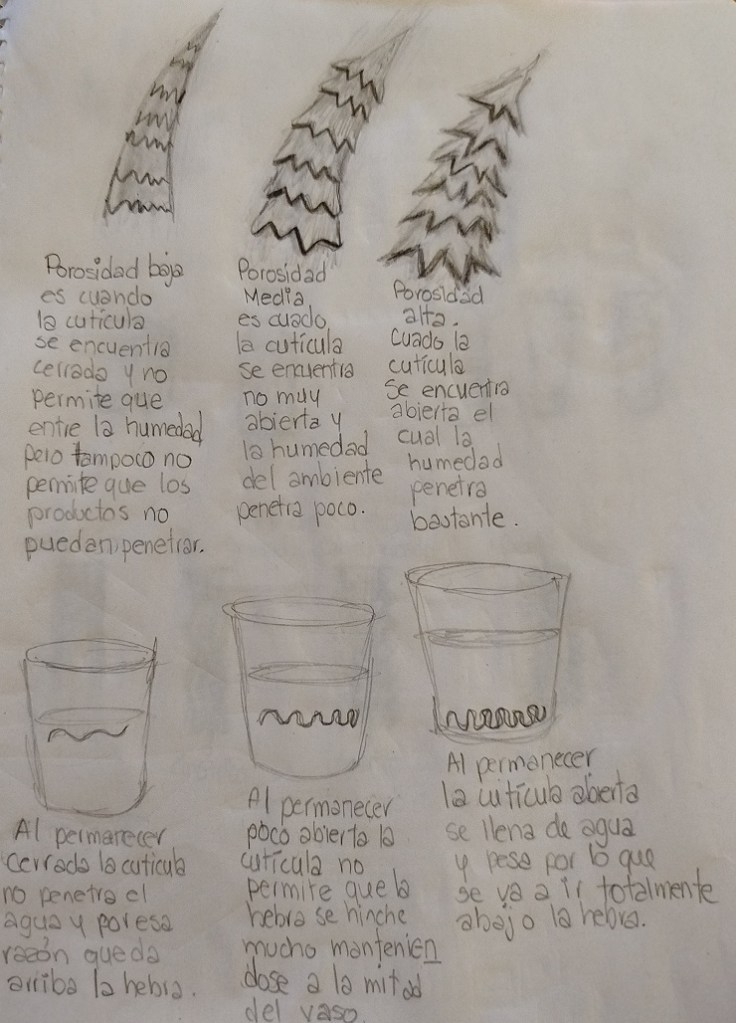 Porosidad baja
es cuando
la cutícula
se encuentra
cerrada y no
permite que
entre la humedad
pero tampoco no
permite que los
productos no
puedan penetrar.
Porosidad
Media
es cuado
la cutícula
se encuentra
no muy
abierta y
la humedad
del ambiente
penetra poco.
Porosidad
alta.
Cuado la
cutícula
se encuentra
abierta el
cual la
humedad
penetra
bastante.
Al permanecer
cerrada la cutícula
no penetra el
agua y por esa
razón queda
arriba la hebra.
Al permanecer
poco abierta la
cutícula no
permite que la
hebra se hinche
mucho mantenien
dose a la mitad
del vaso.
Al permanecer
la cutícula abierta
se llena de agua
y pesa por lo que
se va a ir totalmente
abajo la hebra.